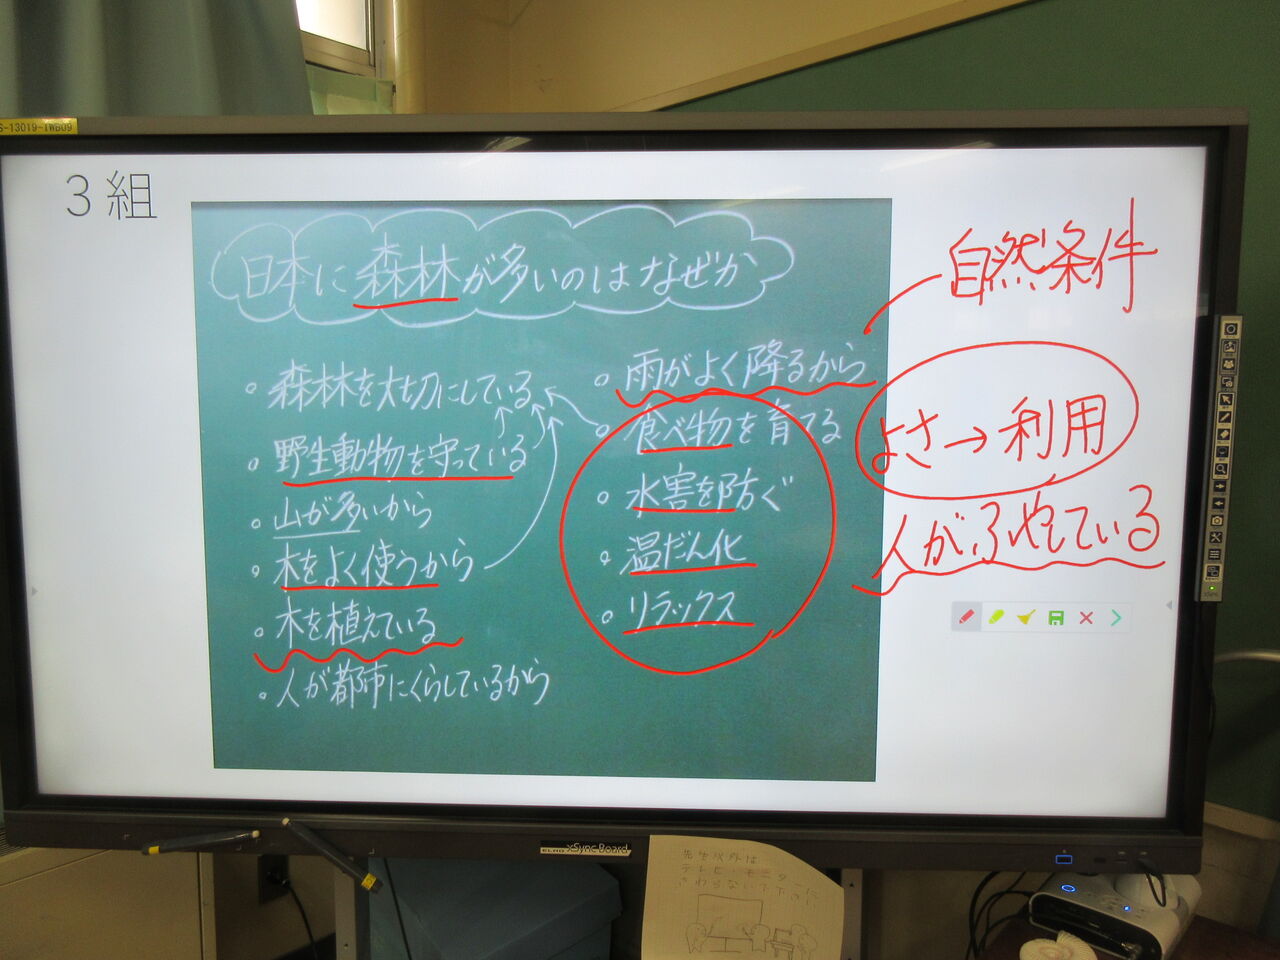 S-13019-IWB09
3組
日本に森林が多いのはなぜか
。森林を大切にしている
。野生動物を守っている
。山が多いから
。木をよく使うから
。木を植えている
。人が都市にくらしているから
。雨がよく降るから
。食べ物を育てる
。水害を防ぐ
。温だん化
。リラックス
自然条件
よさ→利用
人がふやしている
ELMO xSync Board
先生以外は
テレビ・モニターに
さわらないで下さい